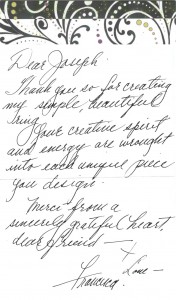 Dear Joseph
Thank you so for creating
my simple, beautiful
ring.
Your creative spirit
and energy are wrought
into each unique piece
you design.
Merci from a
sincerely grateful heart,
dear friend —
Love —
Francisca